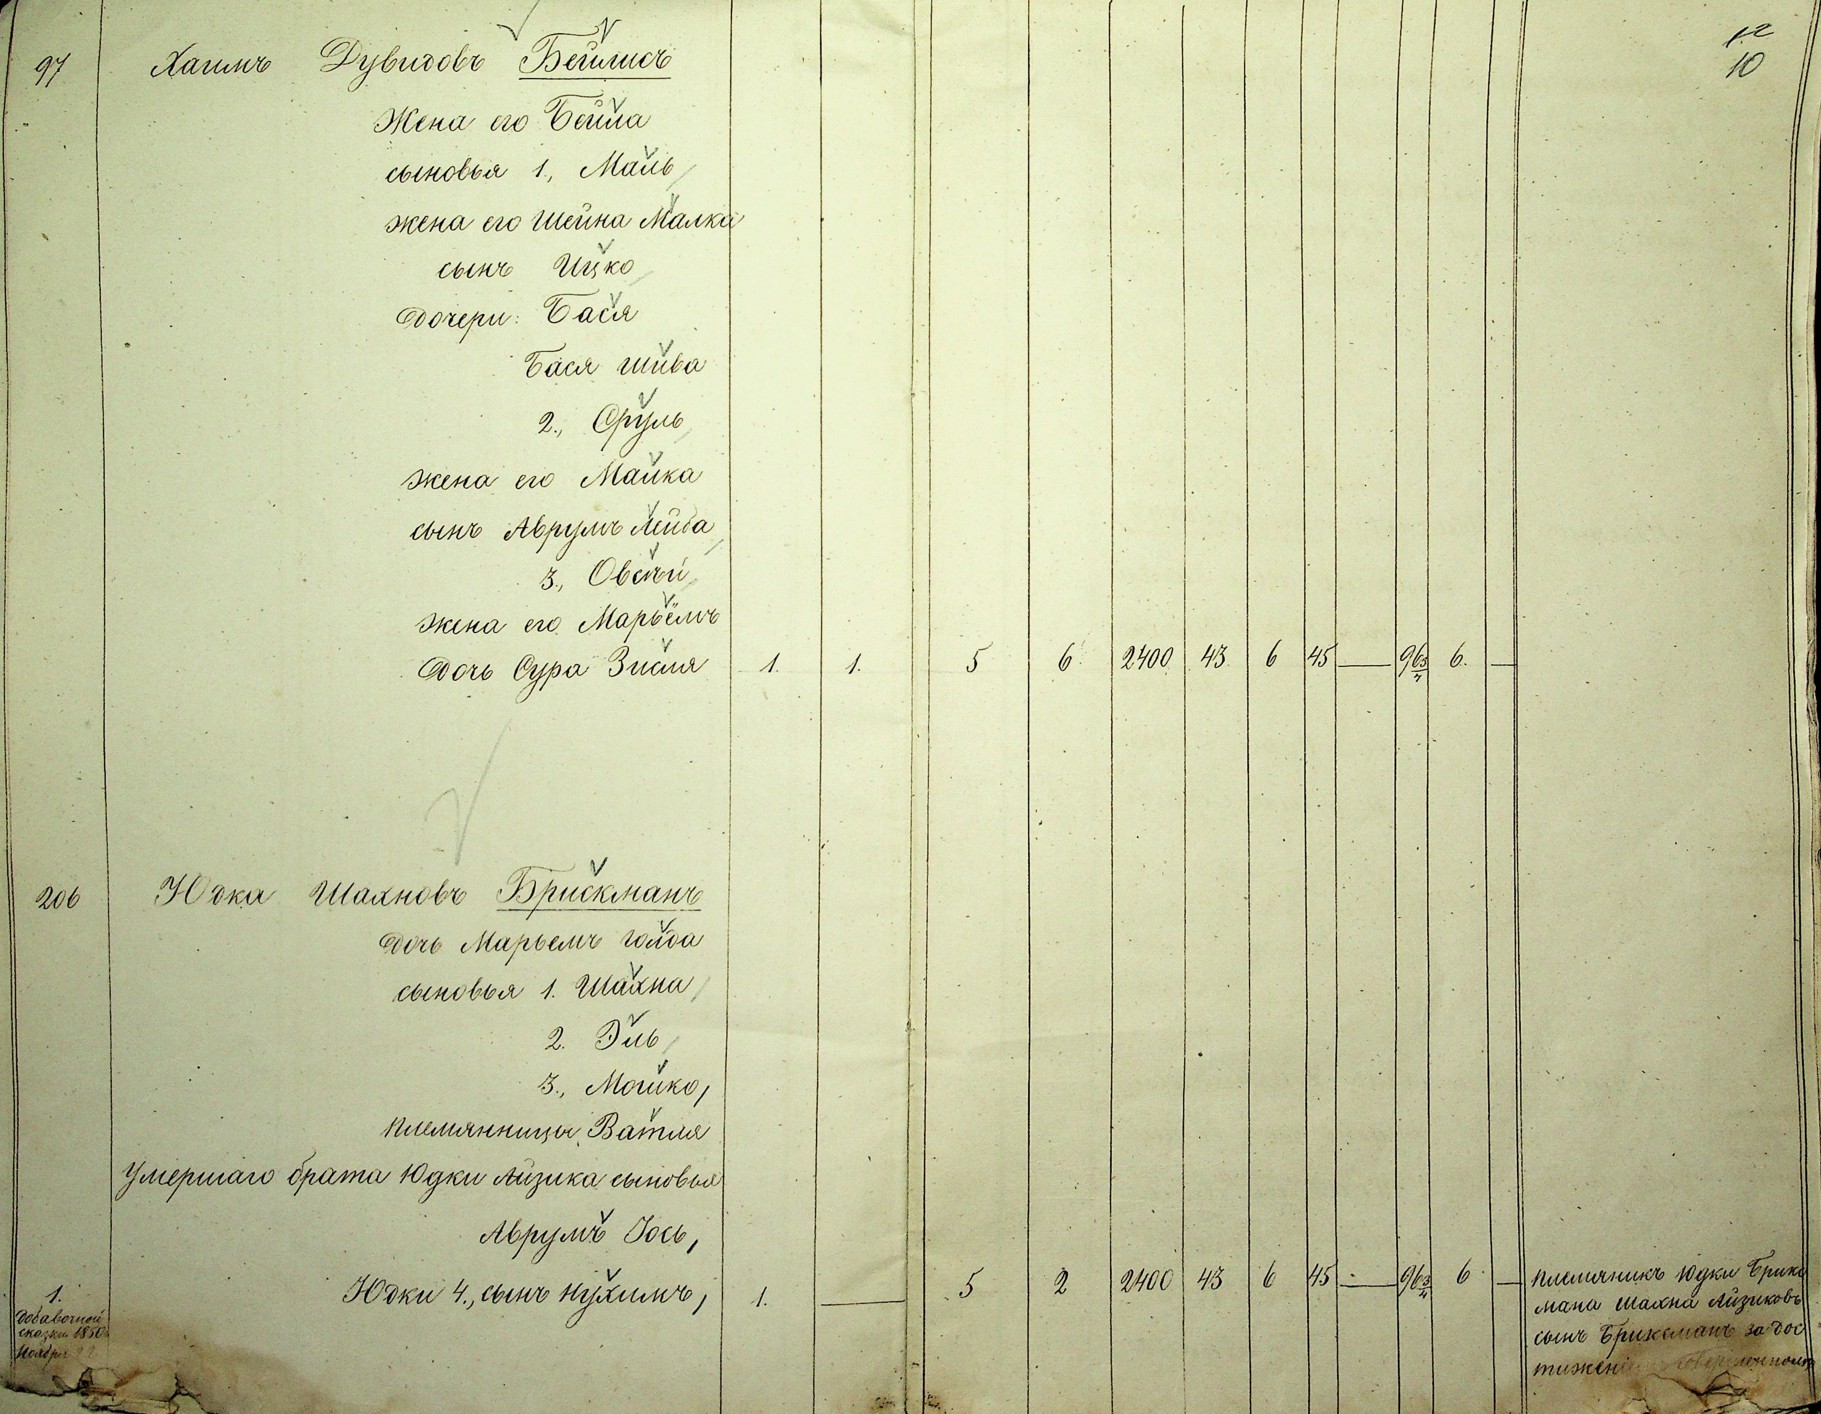 12
10
97 Хаимъ Дувидовъ Бейлисъ
Жена его Бейла
сыновья 1., Маиль
жена его Шейна Малка
сынъ Ицко
дочери: Бася
Бася Шива
2., Сруль
жена его Малка
сынъ Аврумъ Лейба
3., Овсѣй
жена его Марьемъ
дочь Сура Зисля 1. 1. 5 6 2400 43 6 45 — 96 3/4 6. —
206 Юдка Шахновъ Брискманъ
дочь Марьемъ Голда
сыновья 1. Шахна
2. Эль
3., Мошко,
племянницы Ватля
умершаго брата Юдки Айзика сыновья
Аврумъ Іось,
1. Юдки 4., сынъ Нухимъ, 1. — 5 2 2400 43 6 45 — 96 3/4 6 —
добавочной
сказки 1850
Ноября 22
племянникъ Юдки Брикс
мана Шахна Айзиковъ
сынъ Бриксманъ за дос